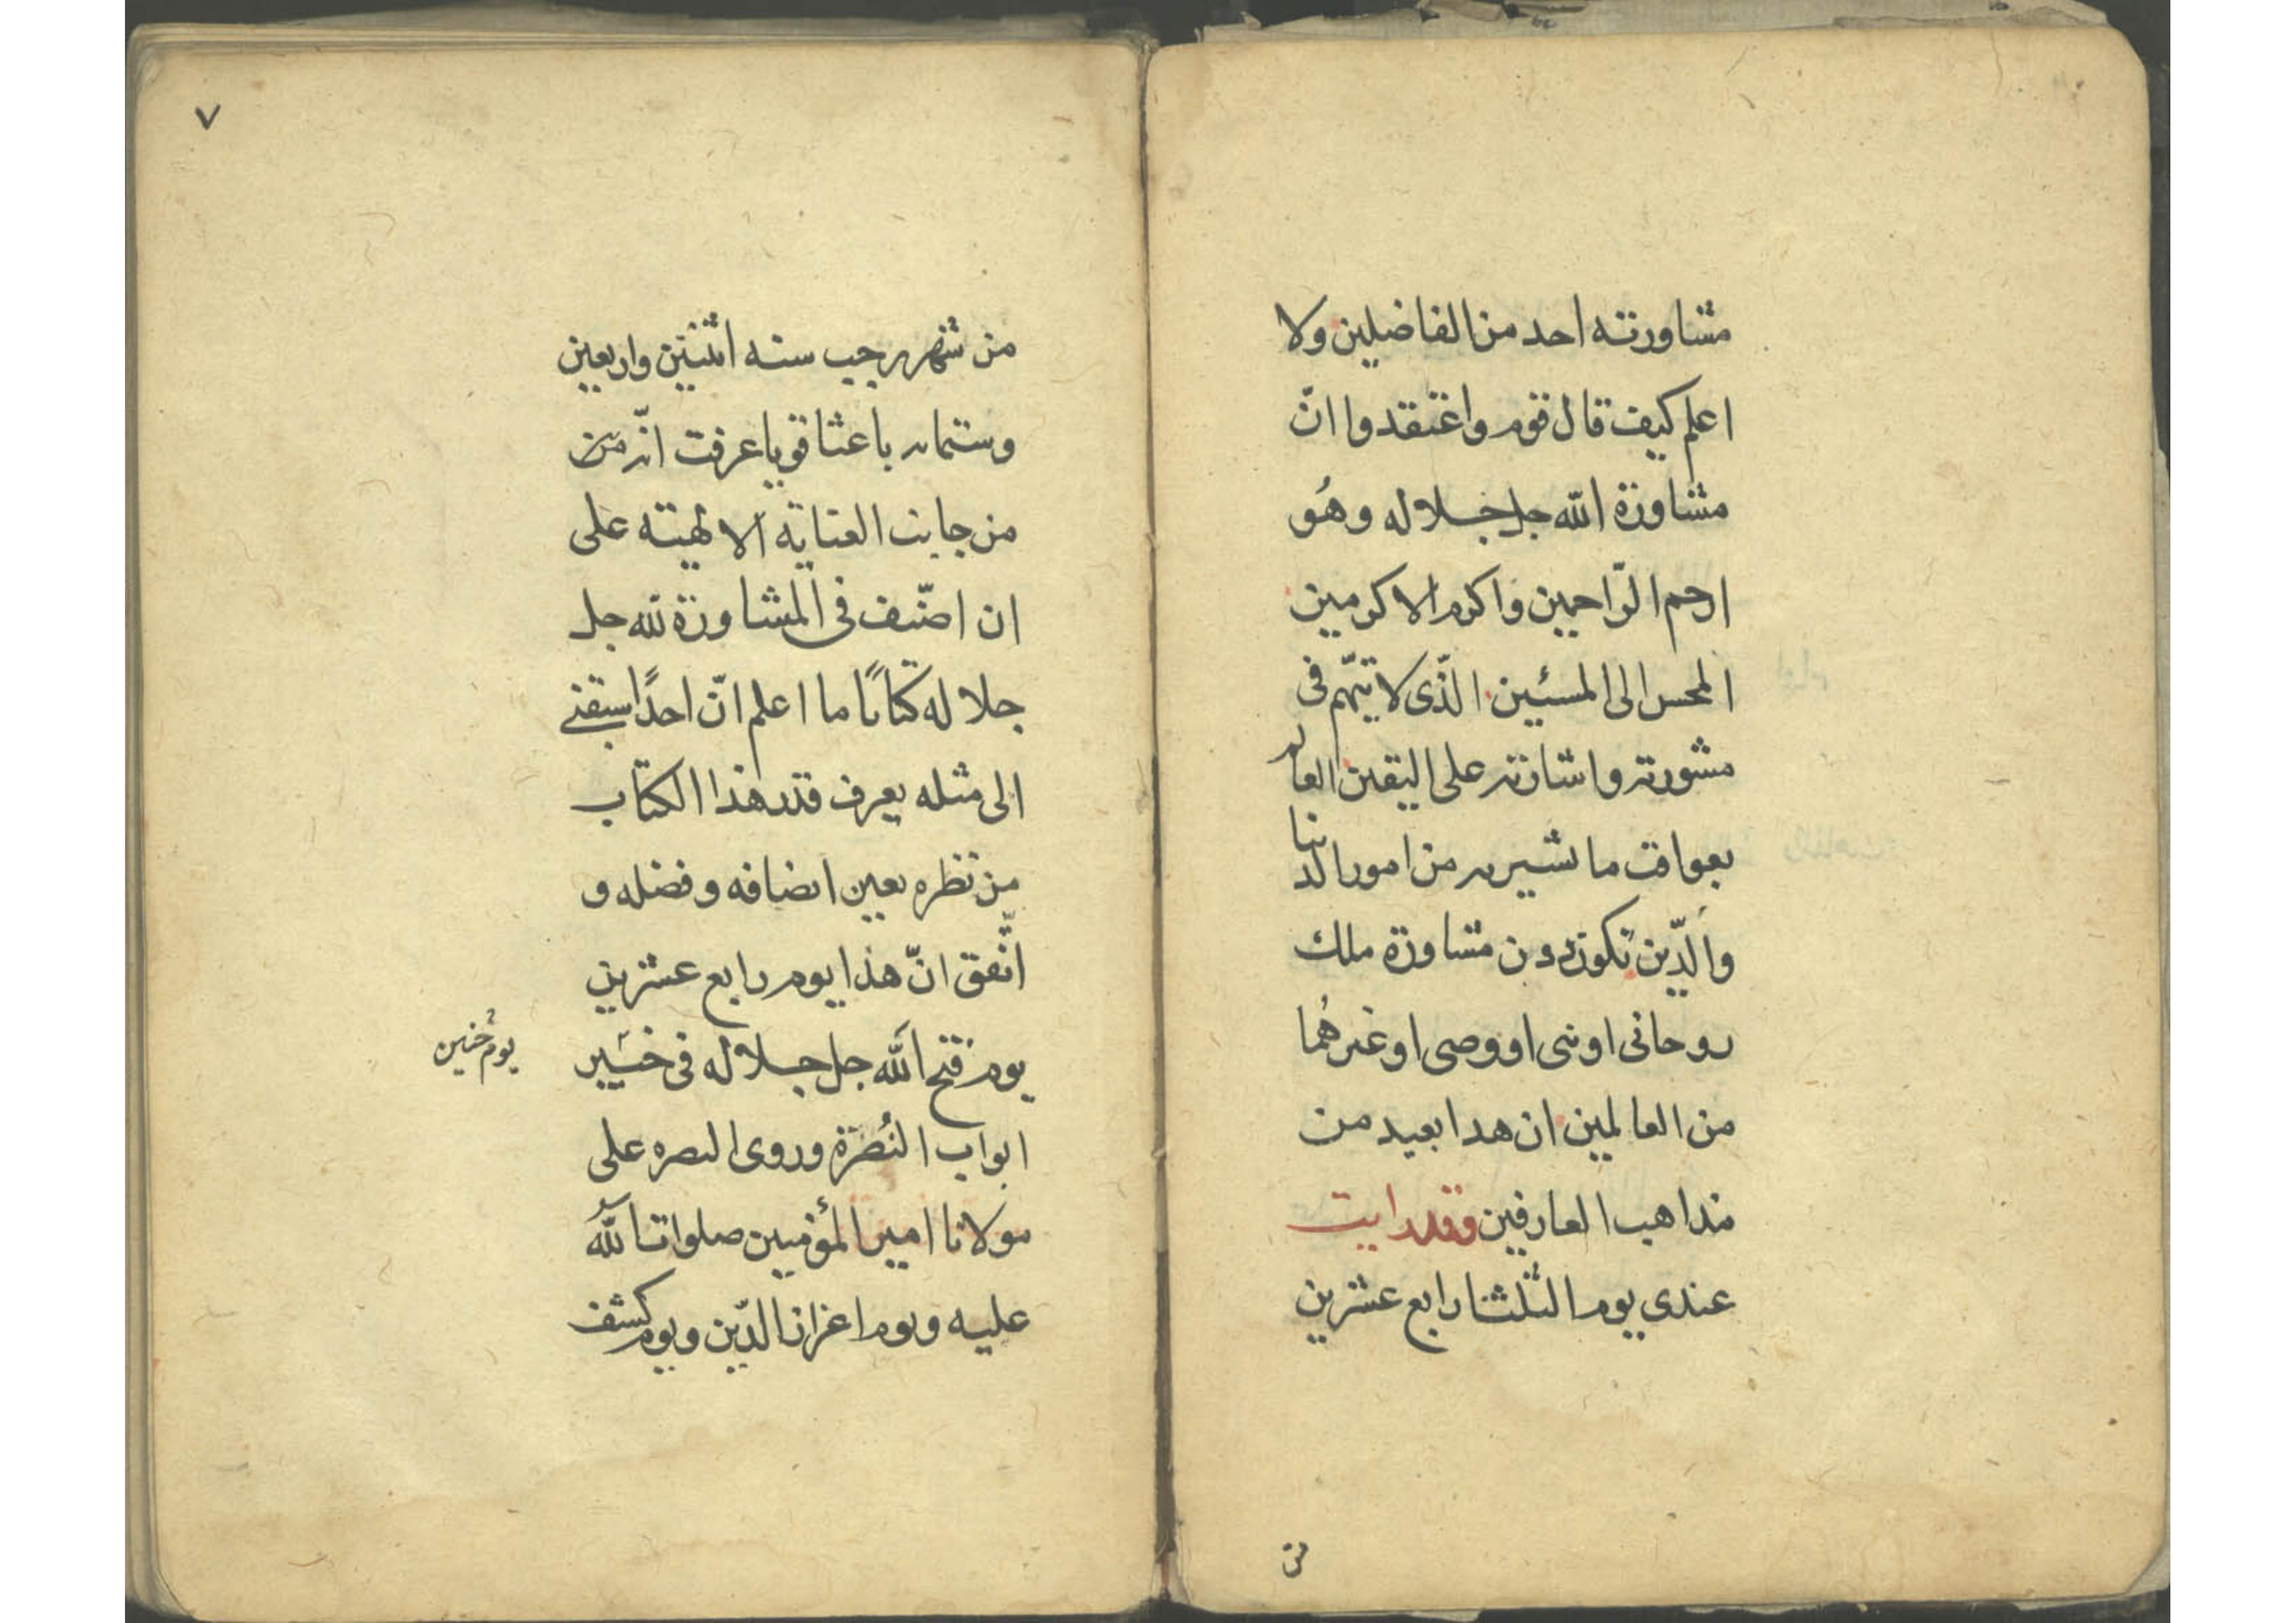 مشاورته احد من الفاضلين ولا
اعلم كيف قال قوم واعتقدوا انّ
مشاورة الله جل جلاله وهُو
ارحم الرّاحمين واكرم الاكرمين
المحسن الى المسئين الذّى لا يتهّم فى
مشورته واشارته على اليقين العالم
بعواقب ما تشير به من امور الدنيا
والدّين تكون دون مشاورة ملك
روحانى او نبى او وصى او غيرهُما
من العالمين ان هدا بعيد من
مداهب العارفين وقد رايت
عندى يوم الثلثا رابع عشرين
من
٧
من شهر رجب سنه اثنتين واربعين
وستمايه باعثا قويا عرفت انّه من
من جانب العناية الالهيته على
ان اصنّف فى المشاورة لله جل
جلاله كتابًا ما اعلم انّ احدًا سبقنى
الى مثله يعرف قدر هذا الكتاب
من نظره بعين انصافه وفضله و
اتّفق انّ هذا يوم رابع عشرين
يوم فتح الله جل جلاله فى خيبر
يوم حُنين
ابواب النُصرة وروى النصره على
مولانا امير المؤمنين صلوات الله
عليه ويوم اعزاز الدّين ويوم كشف